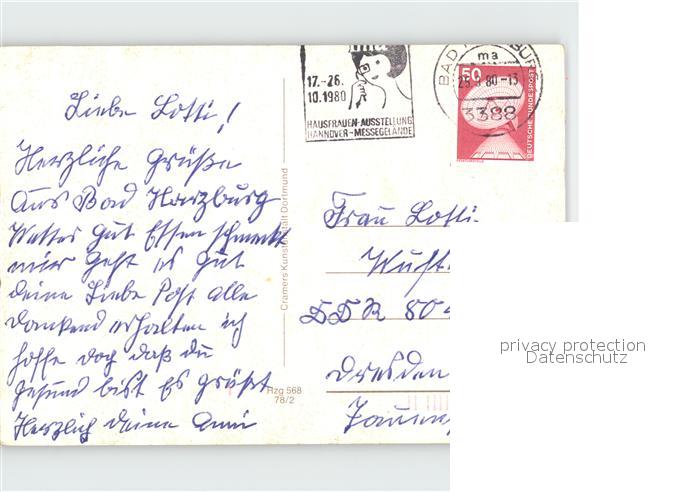 Liebe Lotti!
Herzliche Grüße
aus Bad Harzburg
Wetter gut Essen schmeckt
mir geht es gut
deine Liebe Post alle
dankend erhalten ich
hoffe doch daß du
gesund bist Es grüßt
Herzlich deine Anni
17.-26.
10.1980
HAUSFRAUEN-AUSSTELLUNG
HANNOVER-MESSEGELÄNDE
BAD
ma
80-13
3388
50
DEUTSCHE BUNDESPOST
Cramers Kunstanstalt Dortmund
Hzg 568
78/2
Frau Lotti
DDR 80
Dresden
privacy protection
Datenschutz